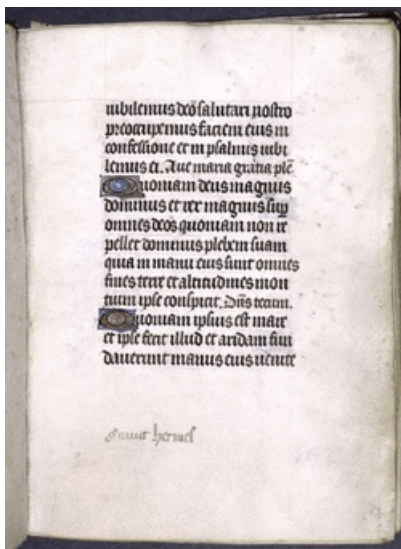 iubilemus deo salutari nostro
preocupemus faciem eius in
confessione et in psalmis iubi
lemus ei. Aue maria gratia plē
Quoniam deus magnus
dominus et rex magnus sup
omnes deos quoniam non re
pellet dominus plebem suam
quia in manu eius sunt omnes
fines terre et altitudines mon
tium ipse conspicit. Dn̄s tecum.
Quoniam ipsius est mare
et ipse fecit illud et aridam fun
dauerunt manus eius uenite